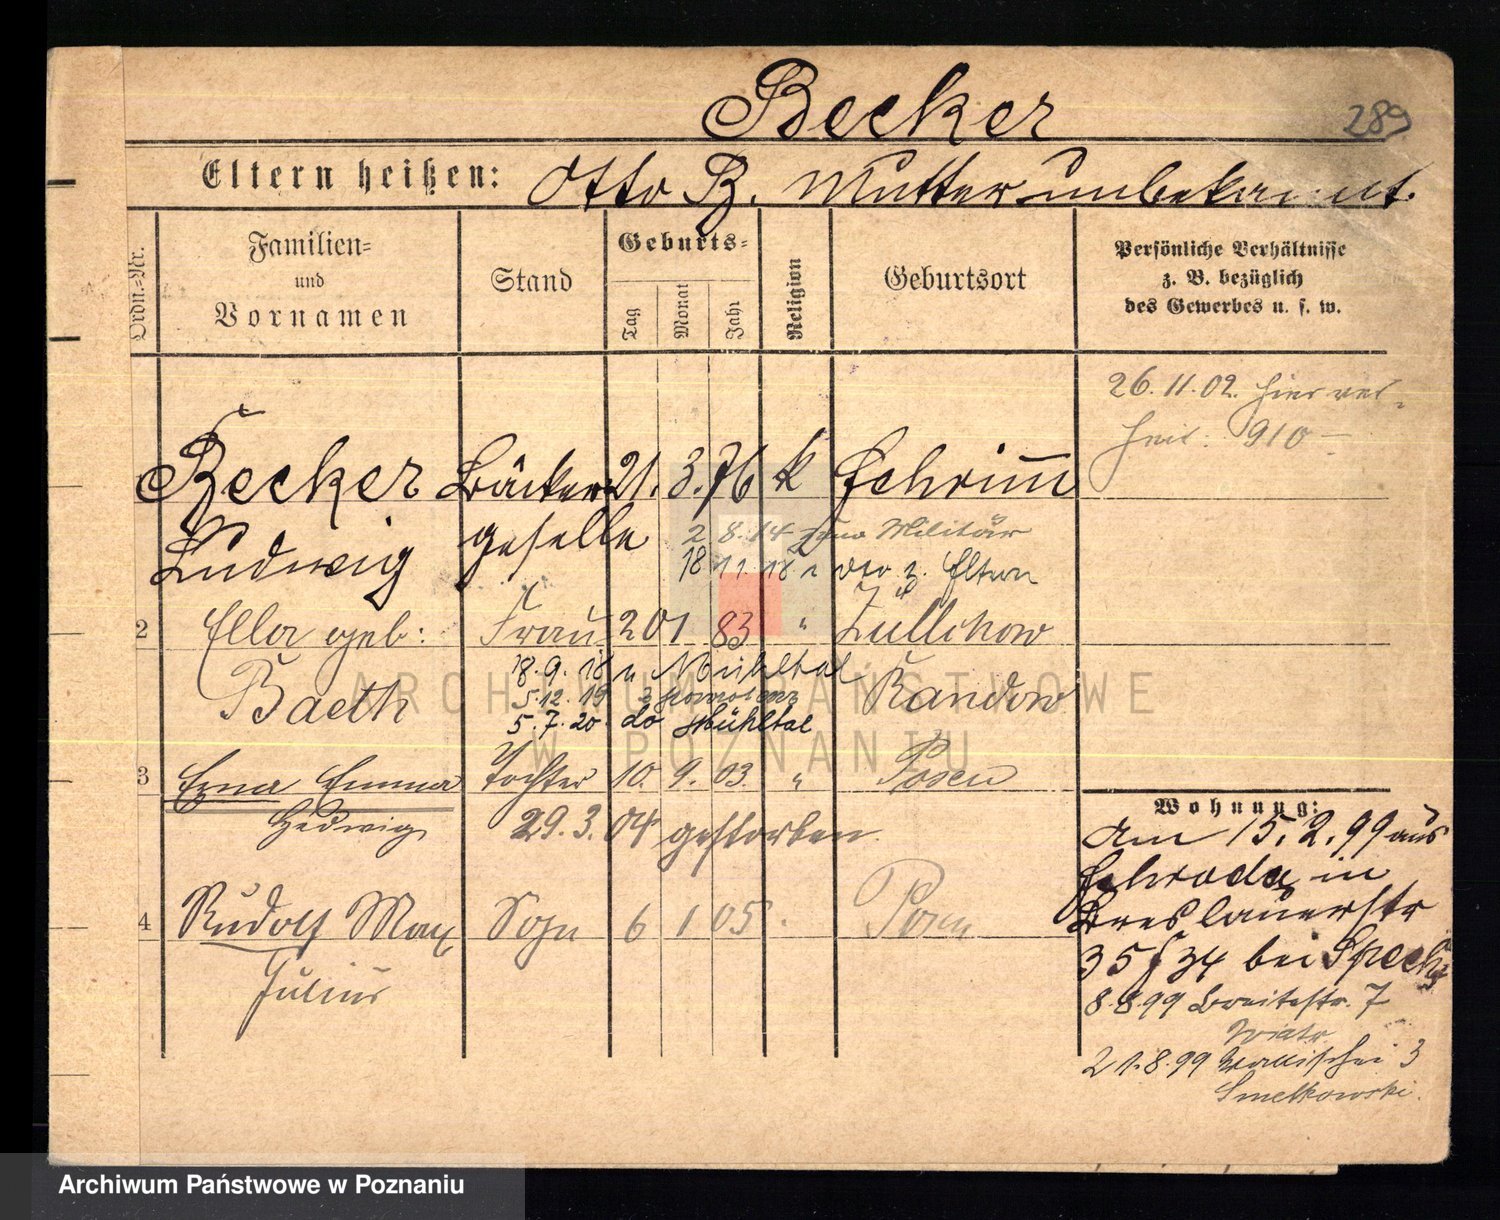 Becker
289
Eltern heißen: Otto B. Mutter unbekannt.
Ordn.=Nr.
Familien=
und
Vornamen
Stand
Geburts=
Tag
Monat
Jahr
Religion
Geburtsort
Persönliche Verhältnisse
z. B. bezüglich
des Gewerbes u. s. w.
26.11.02. hier ver-
heir: 910-
Becker Bäcker 21. 3. 76 k Schrimm
Ludwig geselle
2 8.14 zum Militär
18 11 18 v. z. Eltern
2 Ella geb: Frau 20 1 83 " Züllchow
Baeth Randow
18.9.18 n Mühltal
5.12.19 z
5.7.20 do Mühltal
3 Erna Emma Tochter 10. 9. 03. " Posen
Hedwig 29.3.04 gestorben
4 Rudolf Max Sohn 6 1 05 Posen
Julius
Wohnung:
Am 15.2.99 aus
Schroda in
Breslauerstr
35/34 bei Specht
8.8.99 Breitestr. 7
Wiatr
21.8.99 Wallischei 3
Smelkowski.
ARCHIWUM PAŃSTWOWE
W POZNANIU
Archiwum Państwowe w Poznaniu